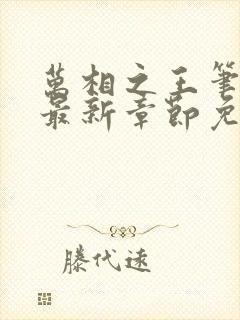 萬相之王筆
最新章節免
滕代遠